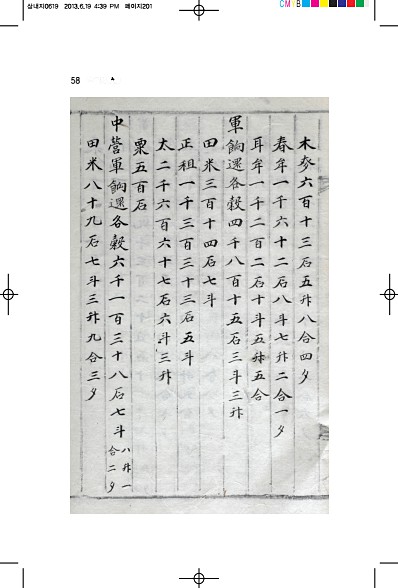 삼내지0619 2013.6.19 4:39 PM 페이지201
CMYB
58
木麥六百十三石五升八合四夕
春牟一千六十二石八斗七升二合一夕
耳牟一千二百二石十斗五升五合
軍餉還各穀四千八百十五石三斗三升
田米三百十四石七斗
正租一千三百三十三石五斗
太二千六百六十七石六斗三升
粟五百石
中營軍餉還各穀六千一百三十八石七斗八升一合二夕
田米八十九石七斗三升九合三夕